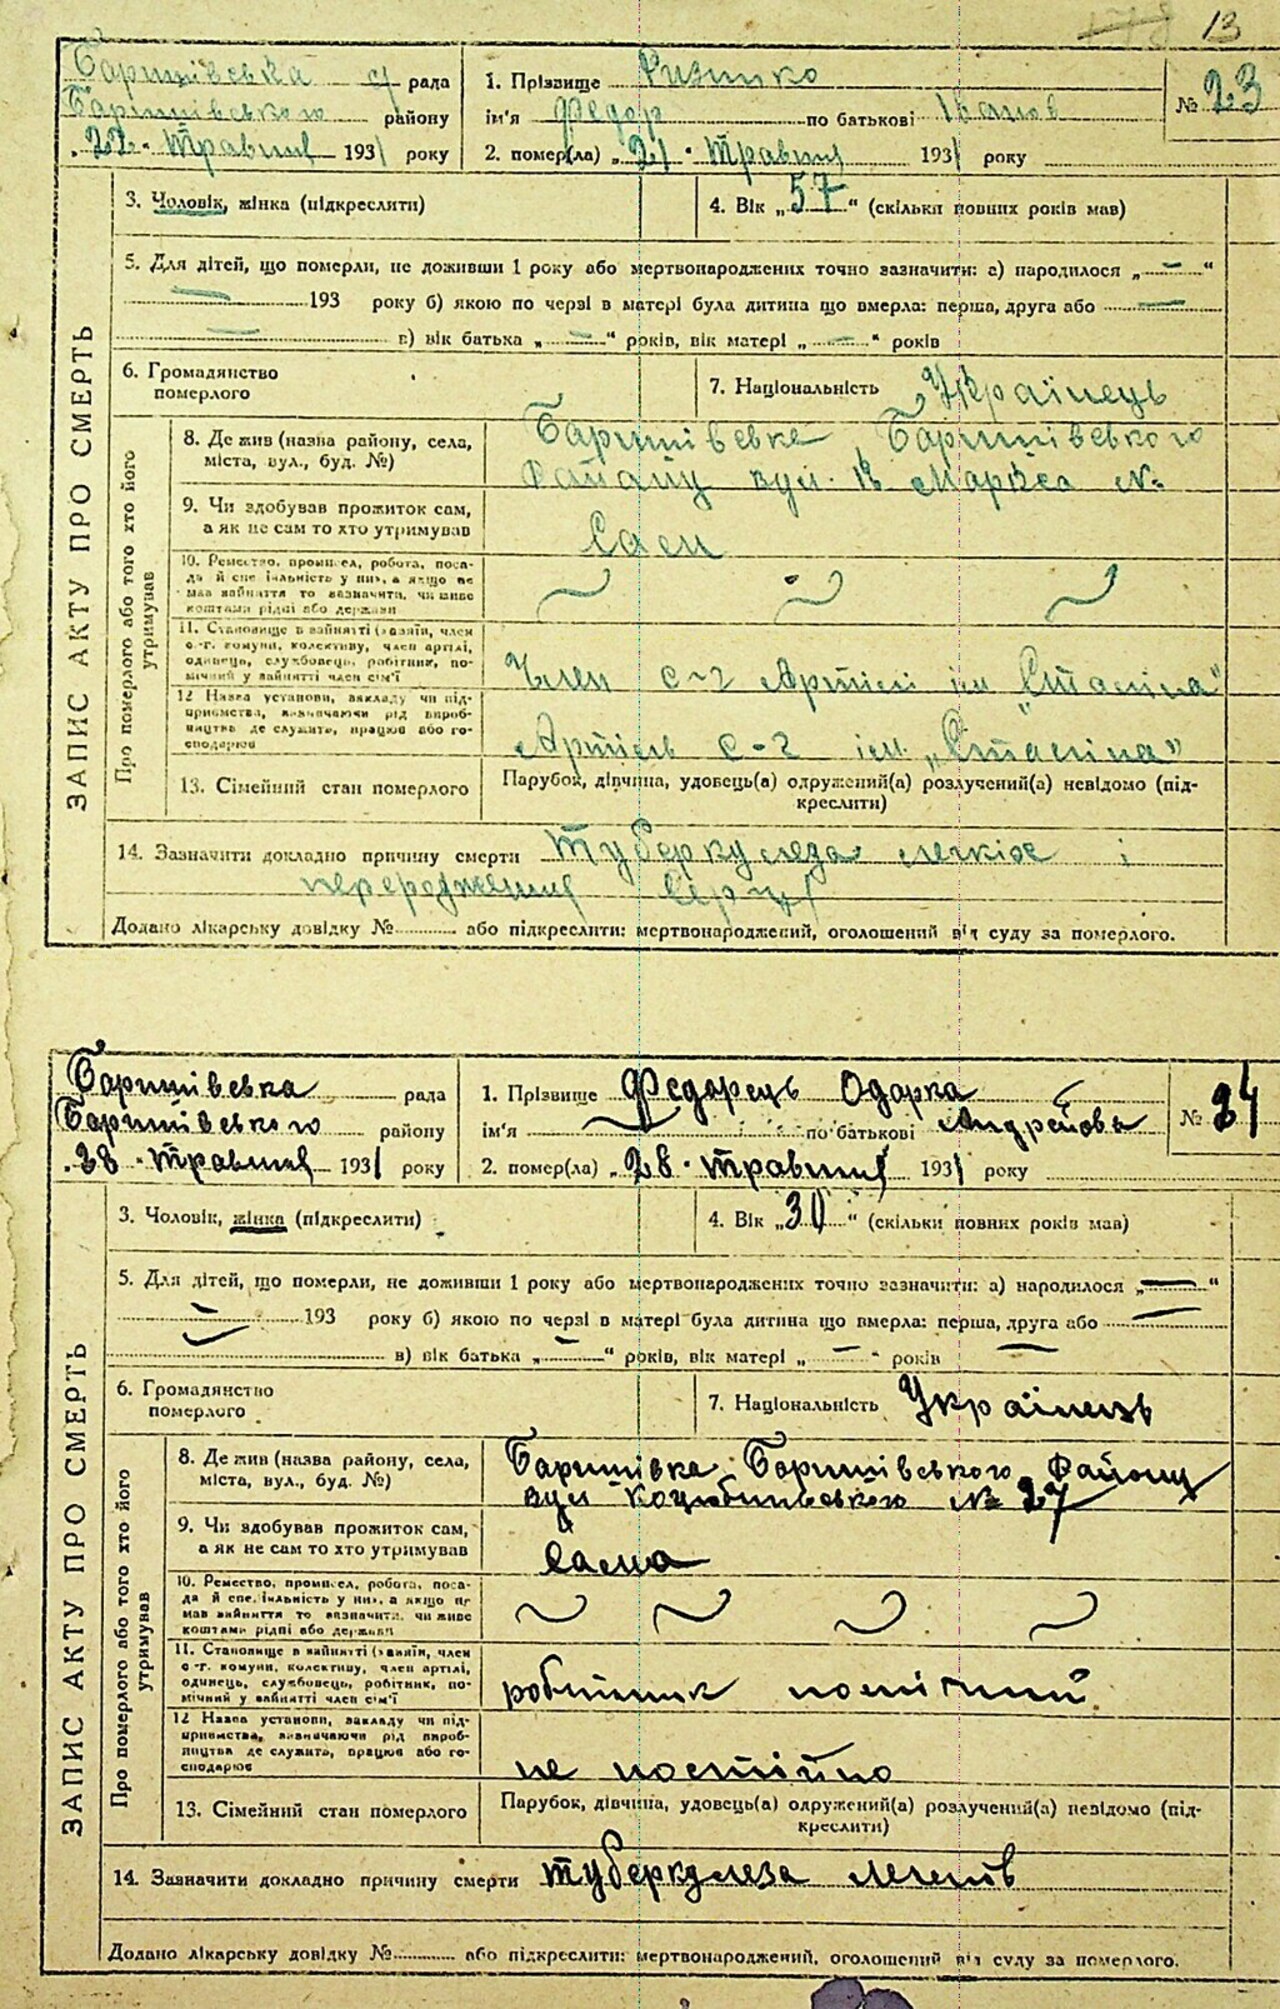 13
Баришівська с рада
Баришівського району
„22" Травня 1931 року
1. Прізвище
ім'я Федор по батькові Іванов
2. помер(ла) „21" Травня 1931 року
№ 23
ЗАПИС АКТУ ПРО СМЕРТЬ
3. Чоловік, жінка (підкреслити)
4. Вік „57" (скільки повних років мав)
5. Для дітей, що померли, не доживши 1 року або мертвонароджених точно зазначити: а) народилося „ — "
— 193 року б) якою по черзі в матері була дитина що вмерла: перша, друга або —
— в) вік батька „ — " років, вік матері „ — " років
6. Громадянство
померлого
7. Національність Українець
Про померлого або того хто його
утримував
8. Де жив (назва району, села,
міста, вул., буд. №)
Баришівське Баришівського
Району вул. К Маркса №
9. Чи здобував прожиток сам,
а як не сам то хто утримував
Сам
10. Ремество, промисел, робота, поса-
да й спеціальність у них, а якщо не
мав зайняття то зазначити, чи живе
коштами рідні або держави
11. Становище в зайнятті (хазяїн, член
с.-г. комуни, колективу, член артілі,
одинець, службовець, робітник, по-
мічний у зайнятті член сім'ї
Член с-г Артілі ім „Сталіна"
12 Назва установи, закладу чи під-
приємства, визначаючи рід вироб-
ництва де служить, працює або го-
сподарює
Артіль с-г ім. „Сталіна"
13. Сімейний стан померлого
Парубок, дівчина, удовець(а) одружений(а) розлучений(а) невідомо (під-
креслити)
14. Зазначити докладно причину смерти туберкульоза легкіх і
перерождення серця
Додано лікарську довідку № або підкреслити: мертвонароджений, оголошений від суду за померлого.
Баришівська рада
Баришівського району
„28" травня 1931 року
1. Прізвище Федорець Одарка
ім'я по батькові Андреївна
2. помер(ла) „28" травня 1931 року
№ 24
ЗАПИС АКТУ ПРО СМЕРТЬ
3. Чоловік, жінка (підкреслити)
4. Вік „30" (скільки повних років мав)
5. Для дітей, що померли, не доживши 1 року або мертвонароджених точно зазначити: а) народилося „ — "
— 193 року б) якою по черзі в матері була дитина що вмерла: перша, друга або —
— в) вік батька „ — " років, вік матері „ — " років —
6. Громадянство
померлого
7. Національність Українець
Про померлого або того хто його
утримував
8. Де жив (назва району, села,
міста, вул., буд. №)
Баришівка Баришівського Району
вул Коцюбинського № 27
9. Чи здобував прожиток сам,
а як не сам то хто утримував
Сама
10. Ремество, промисел, робота, поса-
да й спеціальність у них, а якщо не
мав зайняття то зазначити, чи живе
коштами рідні або держави
11. Становище в зайнятті (хазяїн, член
с.-г. комуни, колективу, член артілі,
одинець, службовець, робітник, по-
мічний у зайнятті член сім'ї
робітник помічний
12 Назва установи, закладу чи під-
приємства, визначаючи рід вироб-
ництва де служить, працює або го-
сподарює
не постійно
13. Сімейний стан померлого
Парубок, дівчина, удовець(а) одружений(а) розлучений(а) невідомо (під-
креслити)
14. Зазначити докладно причину смерти туберкулеза легенів
Додано лікарську довідку № або підкреслити: мертвонароджений, оголошений від суду за померлого.